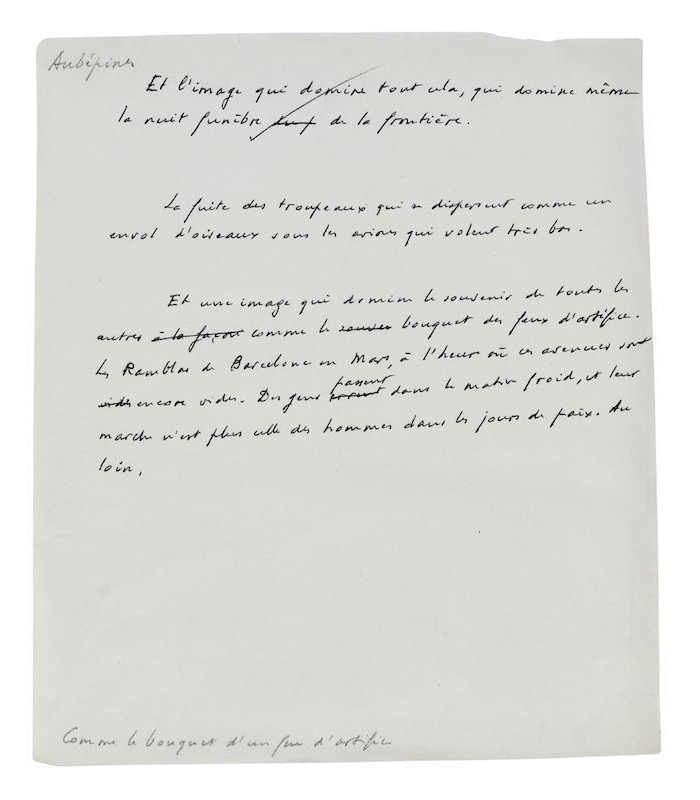 Aubépines
Et l'image qui domine tout cela, qui domine même
la nuit funèbre de la frontière.
La fuite des troupeaux qui se dispersent comme un
envol d'oiseaux sous les avions qui volent très bas.
Et une image qui domine le souvenir de toutes les
autres à la façon comme le bouquet des feux d'artifice.
Les Ramblas de Barcelone en Mars, à l'heure où ces avenues sont
vides encore vides. Des gens passent dans le matin froid, et leur
marche n'est plus celle des hommes dans les jours de paix. Au
loin,
Comme le bouquet d'un feu d'artifice